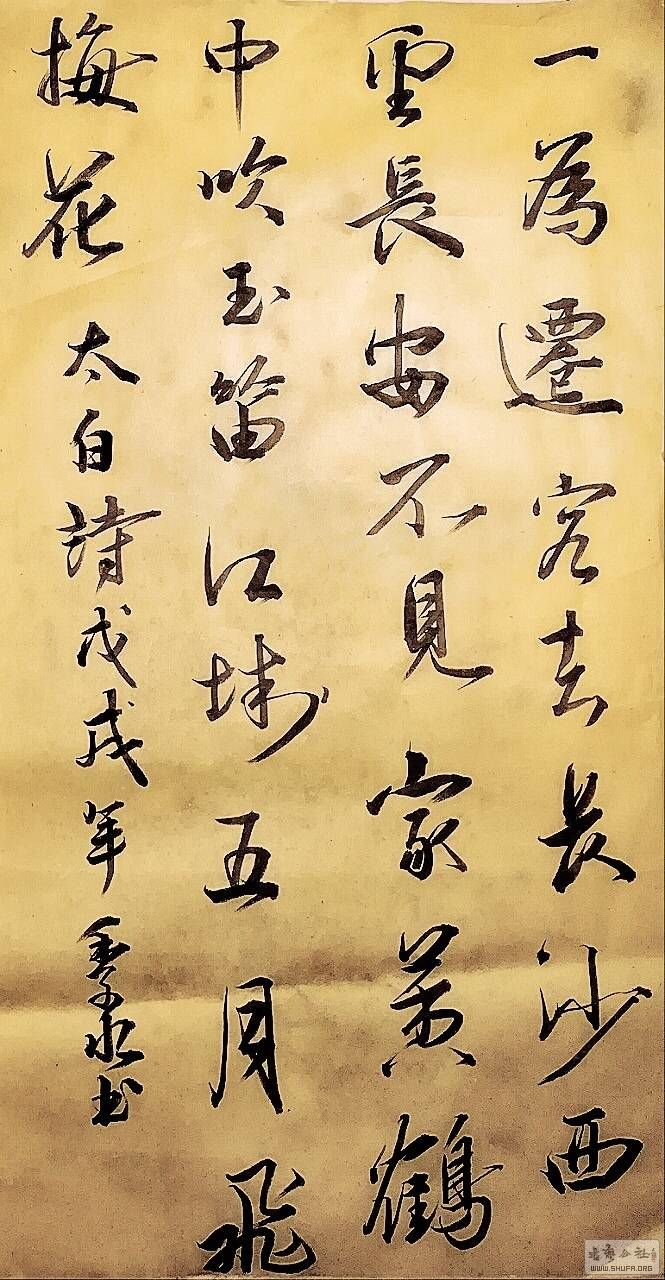 一為遷客去長沙西
望長安不見家黄鶴
中吹玉笛江城五月飛
梅花 太白詩戊戌年 书
WWW.SHUFA.ORG